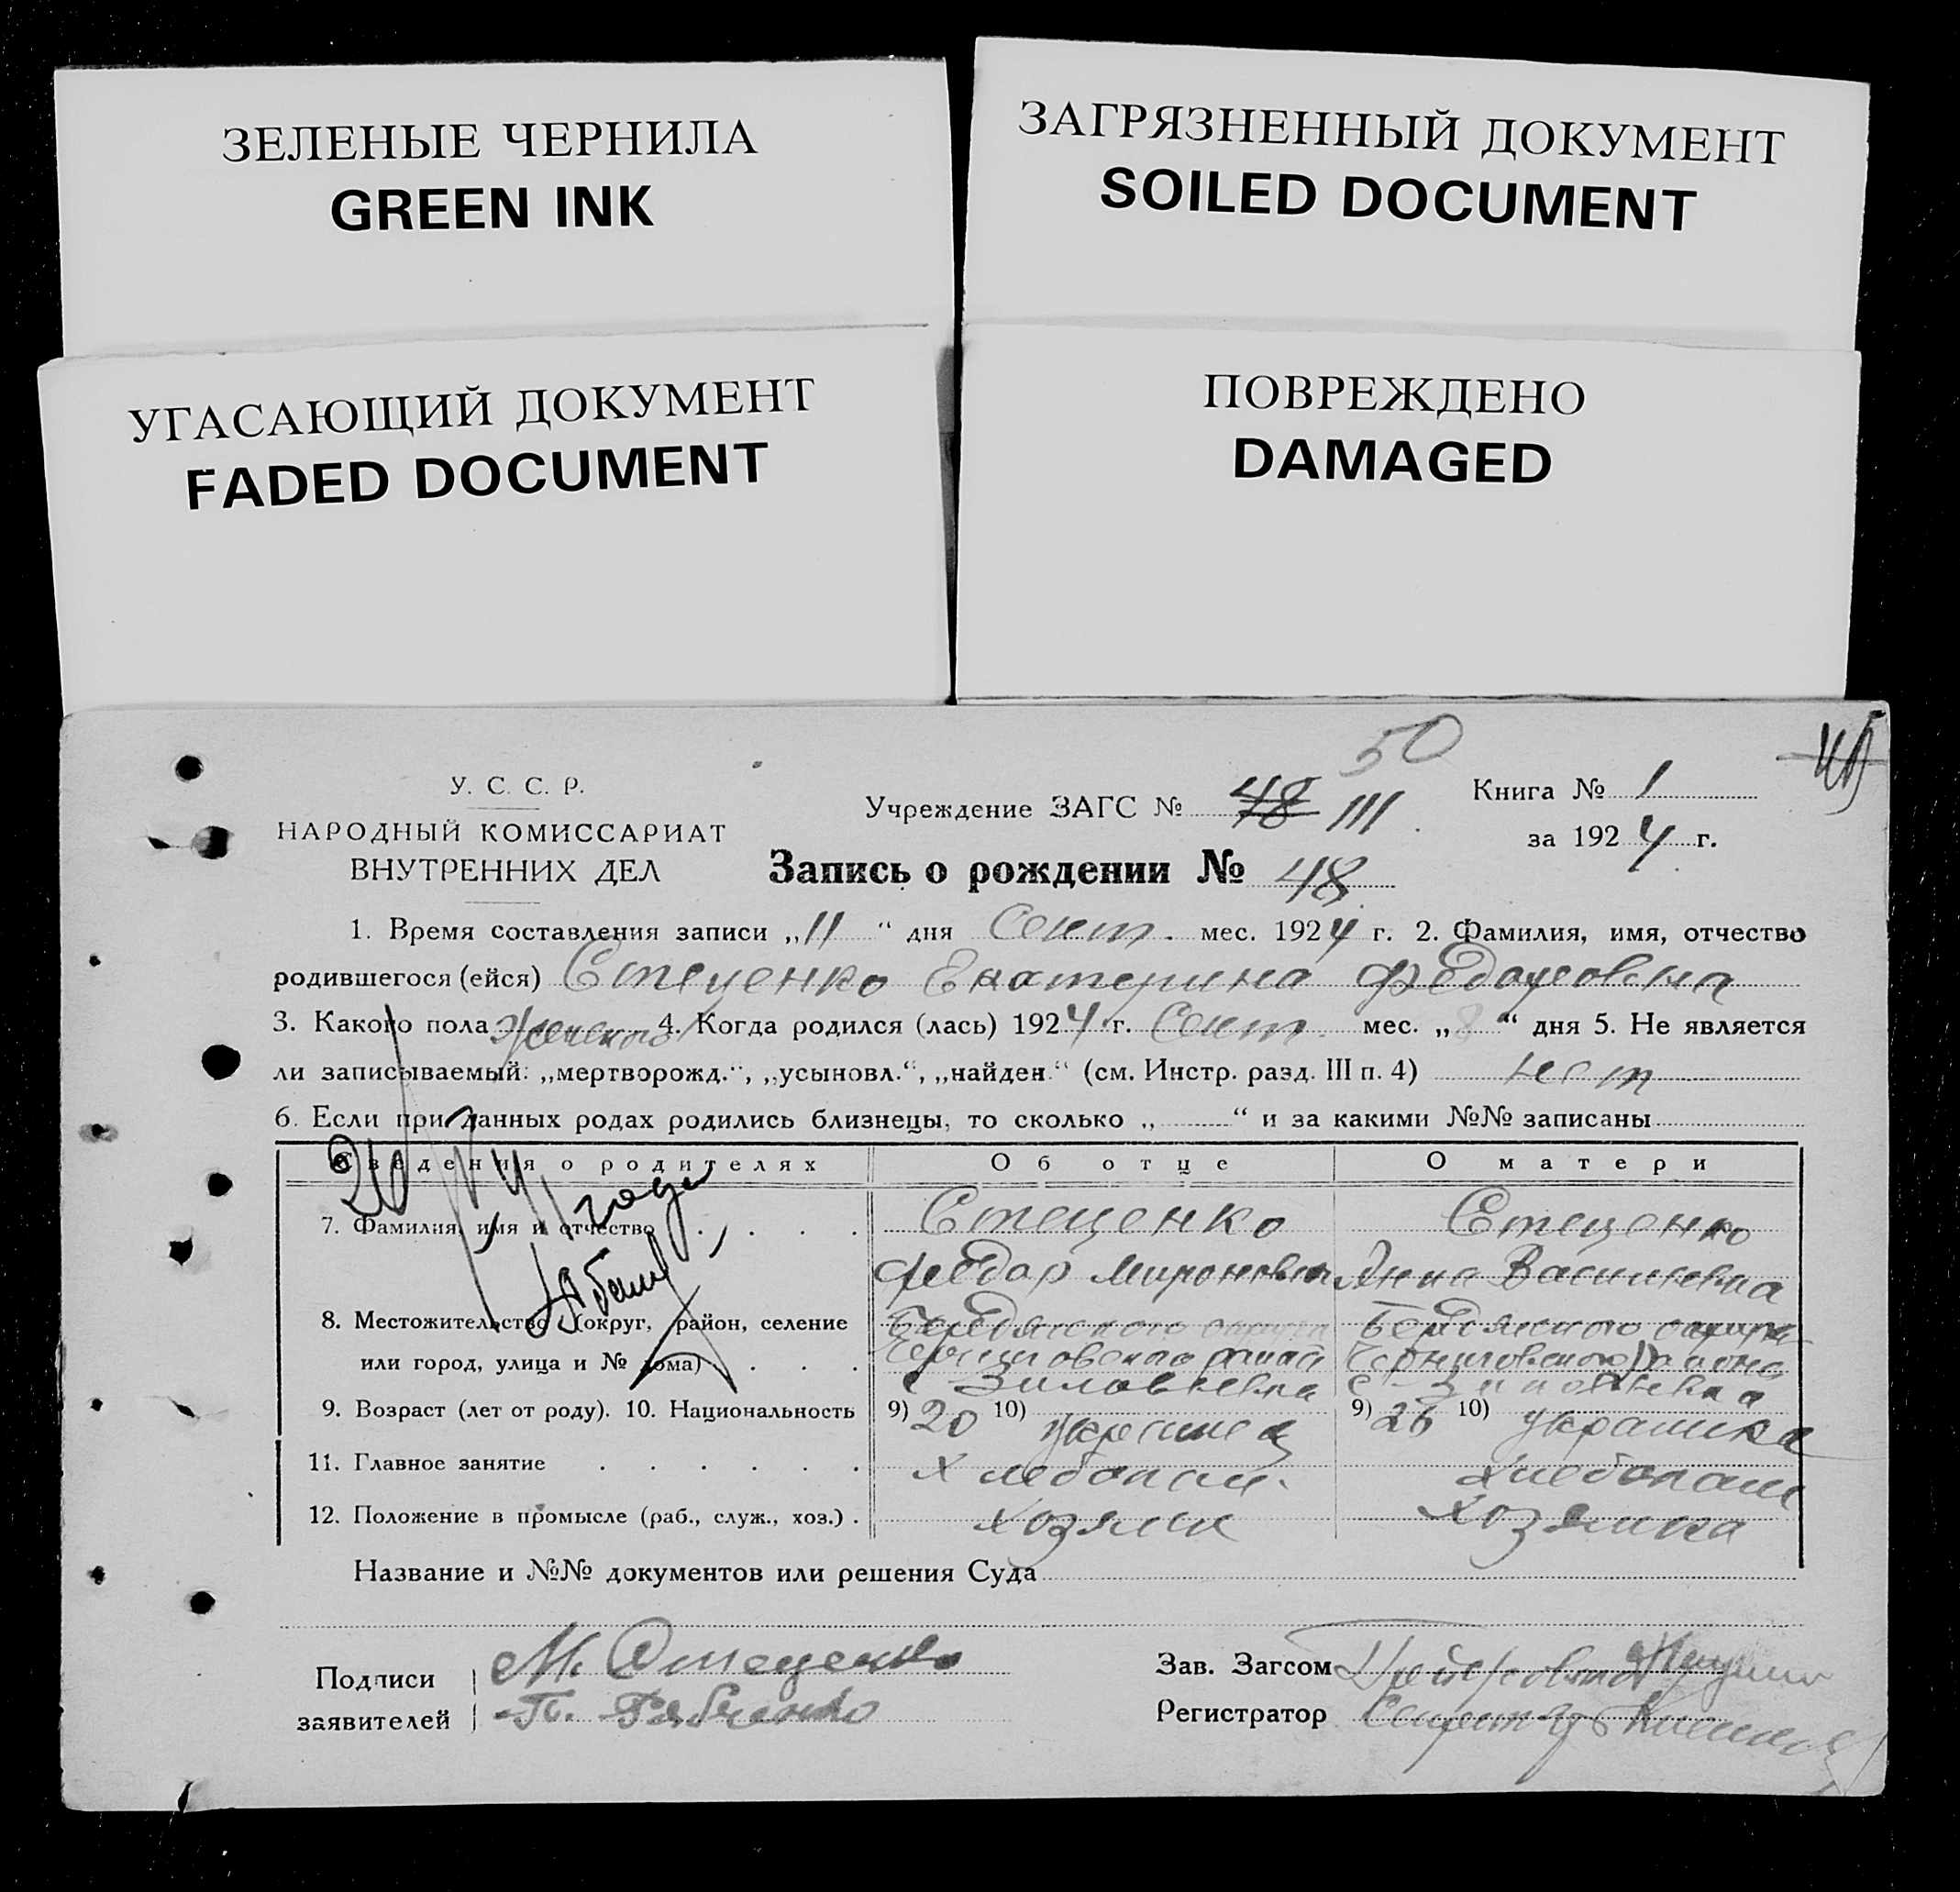 ЗЕЛЕНЫЕ ЧЕРНИЛА
GREEN INK
ЗАГРЯЗНЕННЫЙ ДОКУМЕНТ
SOILED DOCUMENT
УГАСАЮЩИЙ ДОКУМЕНТ
FADED DOCUMENT
ПОВРЕЖДЕНО
DAMAGED
50
У. С. С. Р.
НАРОДНЫЙ КОМИССАРИАТ
ВНУТРЕННИХ ДЕЛ
Учреждение ЗАГС № 48 III
Книга № 1
за 1924 г.
Запись о рождении № 48
1. Время составления записи „11“ дня Сент. мес. 1924 г. 2. Фамилия, имя, отчество
родившегося (ейся) Стеценко Екатерина
3. Какого пола Женского 4. Когда родился (лась) 1924 г. Сент. мес. „8“ дня 5. Не является
ли записываемый: „мертворожд.“, „усыновл.“, „найден.“ (см. Инстр. разд. III п. 4) нет
6. Если при данных родах родились близнецы, то сколько „ “ и за какими №№ записаны
Сведения о родителях Об отце О матери
7. Фамилия, имя и отчество Стеценко Стеценко
Феодор Миронович Анна Васильевна
8. Местожительство (округ, район, селение Бердянского округа Бердянского округа
или город, улица и № дома) Черниговского района Черниговского района
9. Возраст (лет от роду). 10. Национальность 9) 20 10) украинец 9) 26 10)
11. Главное занятие Хлебопаш. хлебопаш
12. Положение в промысле (раб., служ., хоз.) хозяин хозяйка
Название и №№ документов или решения Суда
Подписи М. Стеценко
заявителей П. Рябченко
Зав. Загсом
Регистратор